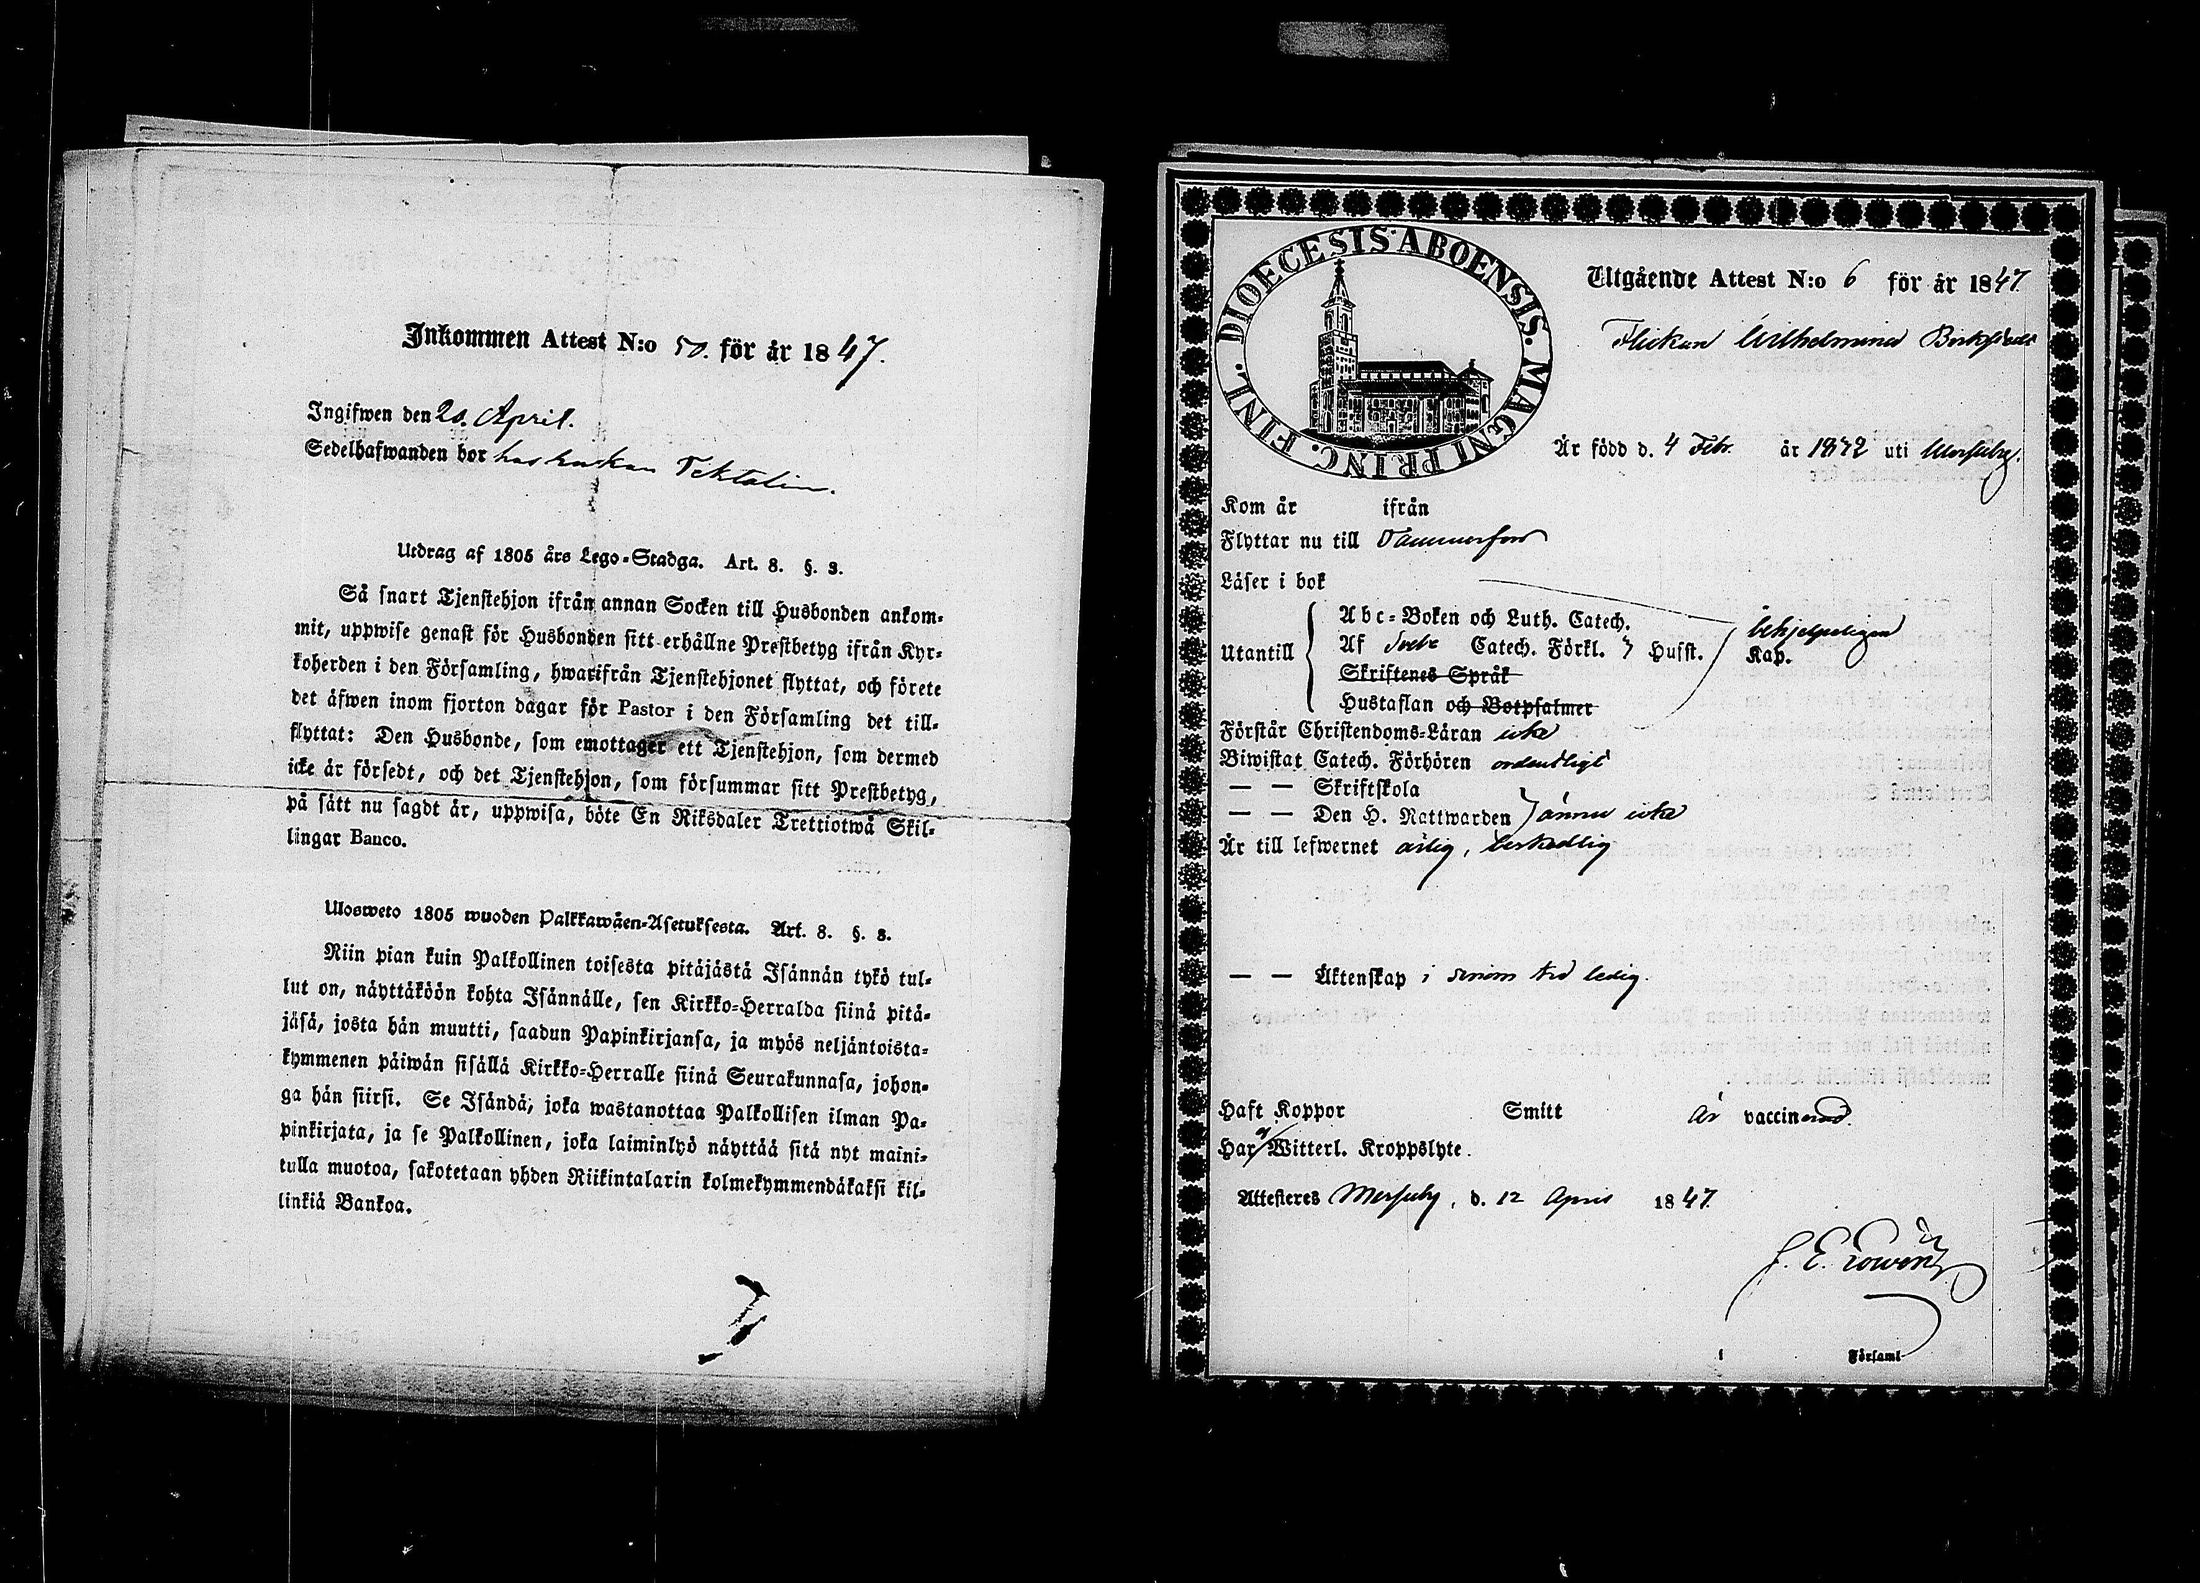 Inkommen Attest N:o 50. för år 1847.
Ingifwen den 20. April.
Sedelhafwanden bor hos
Utdrag af 1805 års Lego-Stadga. Art. 8. §. 3.
Så snart Tjenstehjon ifrån annan Socken till Husbonden ankom-
mit, uppwise genast för Husbonden sitt erhållne Prestbetyg ifrån Kyr-
koherden i den Församling, hwarifrån Tjenstehjonet flyttat, och förete
det äfwen inom fjorton dagar för Pastor i den Församling det till-
flyttat: Den Husbonde, som emottager ett Tjenstehjon, som dermed
icke är försedt, och det Tjenstehjon, som försummar sitt Prestbetyg,
på sätt nu sagdt är, uppwisa, böte En Riksdaler Trettiotwå Skil-
lingar Banco.
Ulosweto 1805 wuoden Palkkawäen-Asetuksesta. Art. 8. §. 3.
Niin pian kuin Palkollinen toisesta pitäjästä Isännän tykö tul-
lut on, näyttäköön kohta Isännälle, sen Kirkko-Herralda siinä pitä-
jäsä, josta hän muutti, saadun Papinkirjansa, ja myös neljäntoista-
kymmenen päiwän sisällä Kirkko-Herralle siinä Seurakunnasa, johon-
ga hän siirsi. Se Isändä, joka wastanottaa Palkollisen ilman Pa-
pinkirjata, ja se Palkollinen, joka laiminlyö näyttää sitä nyt maini-
tulla muotoa, sakotetaan yhden Riikintalarin kolmekymmendäkaksi kil-
linkiä Bankoa.
DIOECESIS ABOENSIS. MAGNI PRINC. FINL.
Utgående Attest N:o 6 för år 1847
Flickan Wilhelmina
Är född d. 4 Febr. år 1832 uti
Kom år ifrån
Flyttar nu till Tammerfors
Läser i bok
Abc-Boken och Luth. Catech.
Utantill Af Catech. Förkl. Husst. Kap.
Skriftenes Språk
Hustaflan och Botpsalmer
Förstår Christendoms-Läran icke
Biwistat Catech. Förhören ordentligt
— — Skriftskola
— — Den H. Nattwarden ännu icke
Är till lefwernet ärlig, beskedlig
— — Äktenskap i ledig.
Haft Koppor Smitt är vaccinerad.
Har ej Witterl. Kroppslyte.
Attesteres d. 12 April 1847.
J. E.
i Församl